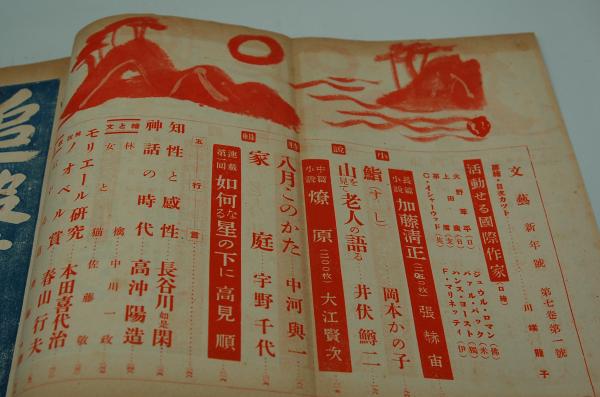 文藝 新年號 第七卷第一號
表紙・目次カット 川端龍子
活動せる國際作家(口繪)
ジュウル・ロマン(佛)
パァル・バック(米)
ハンス・ヨースト(獨)
F・マリネッティ(伊)
火野葦平(日)
上田廣(日)
C・イシャーウッド(英)
小説
長篇小説 加藤清正(三五〇枚) 張赫宙
鮨(すし) 岡本かの子
山を見て老人の語る 井伏鱒二
中篇小説 燎原(二〇〇枚) 大江賢次
特輯
八月・このかた 中河與一
家庭 宇野千代
連載第一回 如何なる星の下に 高見順
五行言
知性と感性 長谷川如是閑
神話の時代 高沖陽造
繪と文
林檎 中川一政
女と猫 佐藤敬
モリエール研究 本田喜代治
ノオベル賞 春山行夫